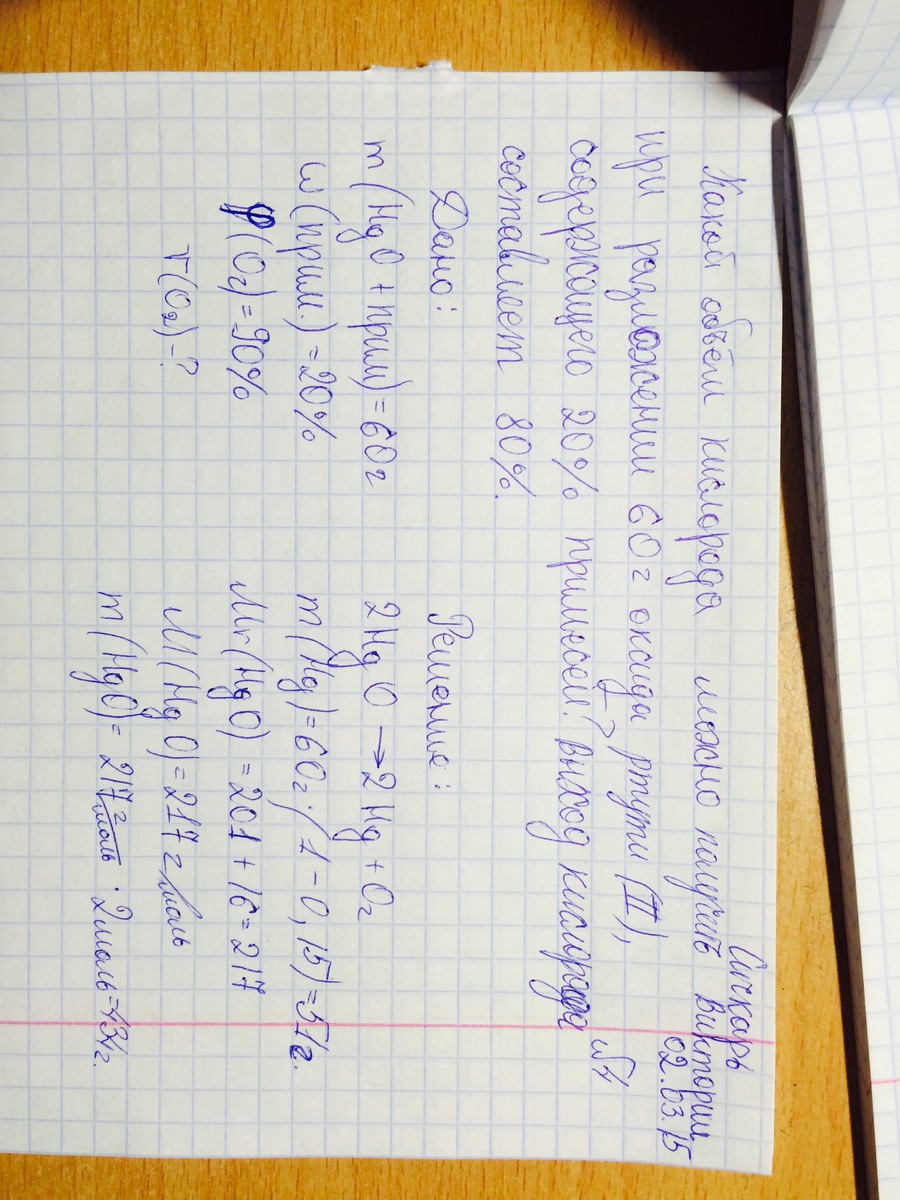 Ичкарь
Виктории
02.03.15
№1
Какой объём кислорода можно получить
при разложении 60 г оксида ртути (II),
содержащего 20% примесей? Выход кислорода
составляет 80%.
Дано:
m (HgO + прим) = 60г
ω (прим.) = 20%
φ (O2) = 90%
V(O2) - ?
Решение:
2HgO → 2Hg + O2
m (Hg) = 60г · (1 - 0,15) = 51г.
Mr (HgO) = 201 + 16 = 217
M (HgO) = 217 г/моль
m (HgO) = 217 г/моль · 2моль = 434г.